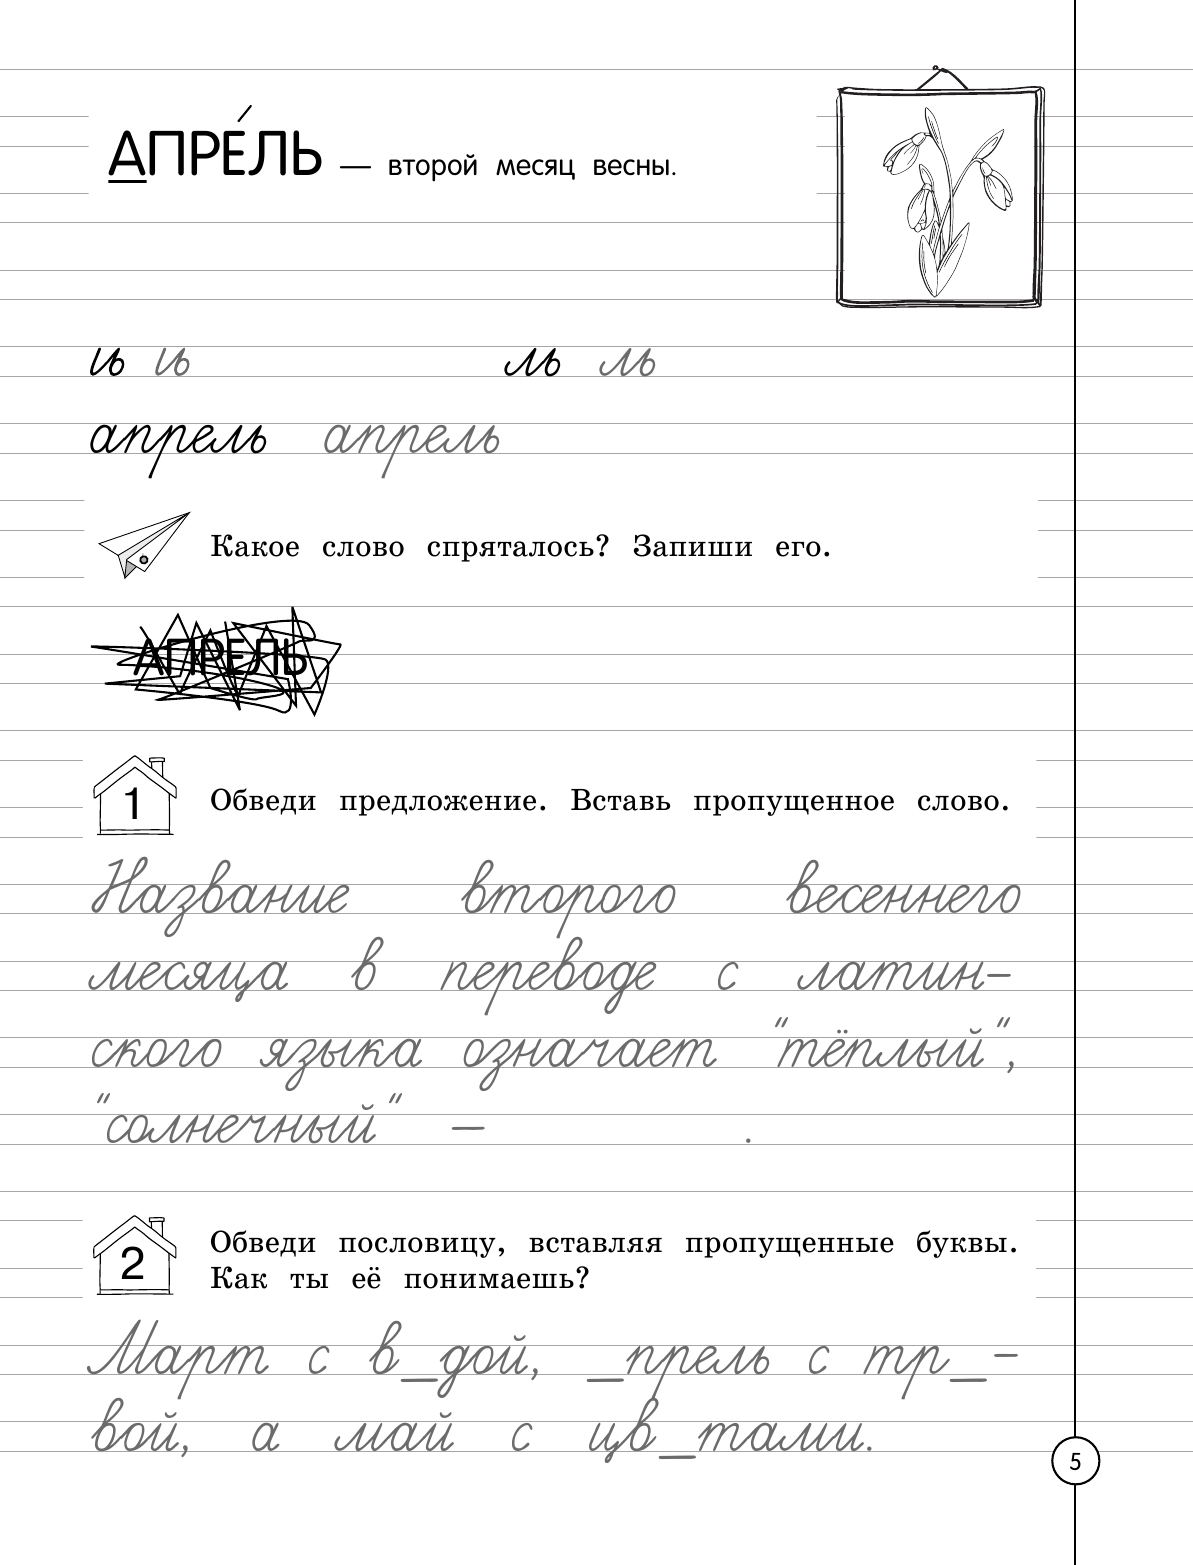 АПРЕ́ЛЬ — второй месяц весны.
иь иь ль ль
апрель апрель
Какое слово спряталось? Запиши его.
АПРЕЛЬ
1 Обведи предложение. Вставь пропущенное слово.
Название второго весеннего
месяца в переводе с латин-
ского языка означает "тёплый",
"солнечный" — .
2 Обведи пословицу, вставляя пропущенные буквы.
Как ты её понимаешь?
Март с в_дой, _прель с тр_-
вой, а май с цв_тами.
5